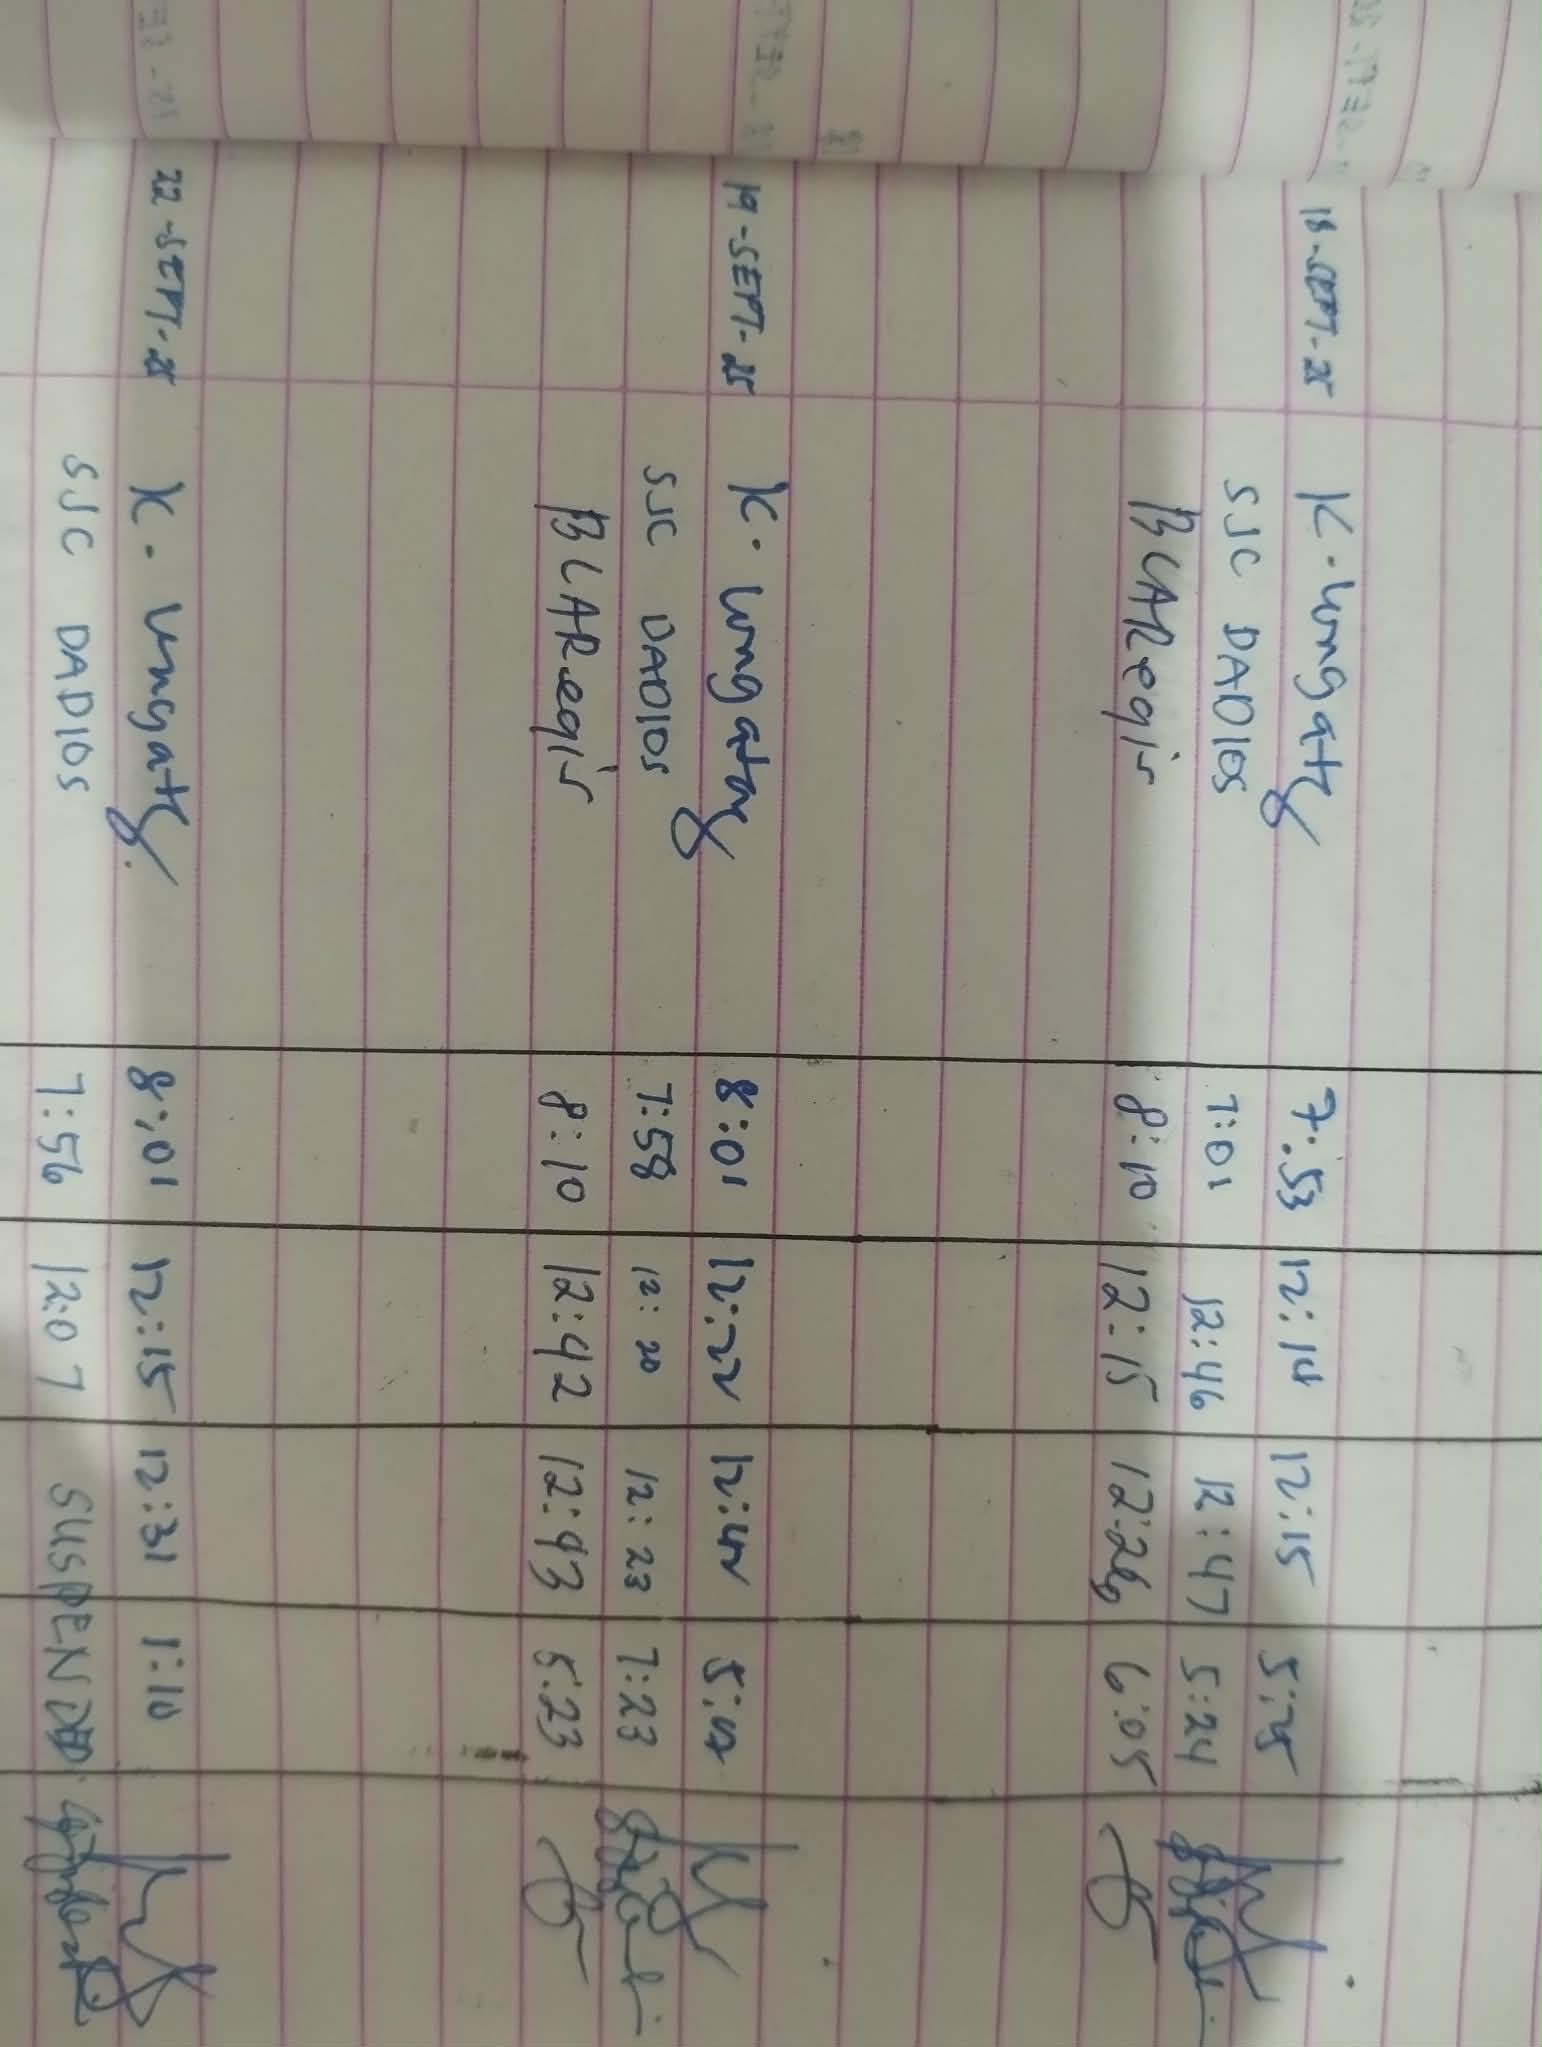 18-SEPT-25 K. Lungatq 7:53 12:14 12:15 5:25
SJC DADIOS 7:01 12:46 12:47 5:24
BLARegis 8:10 12:15 6:05
19-SEPT-25 K. Lungatq 8:01 12:22 12:42 5:02
SJC DADIOS 7:58 12:20 12:23 7:23
BLARegis 8:10 12:42 12:43 5:23
22-SEPT-25 K. Lungatq 8:01 12:15 12:31 1:10
SJC DADIOS 7:56 12:07 SUSPENDED